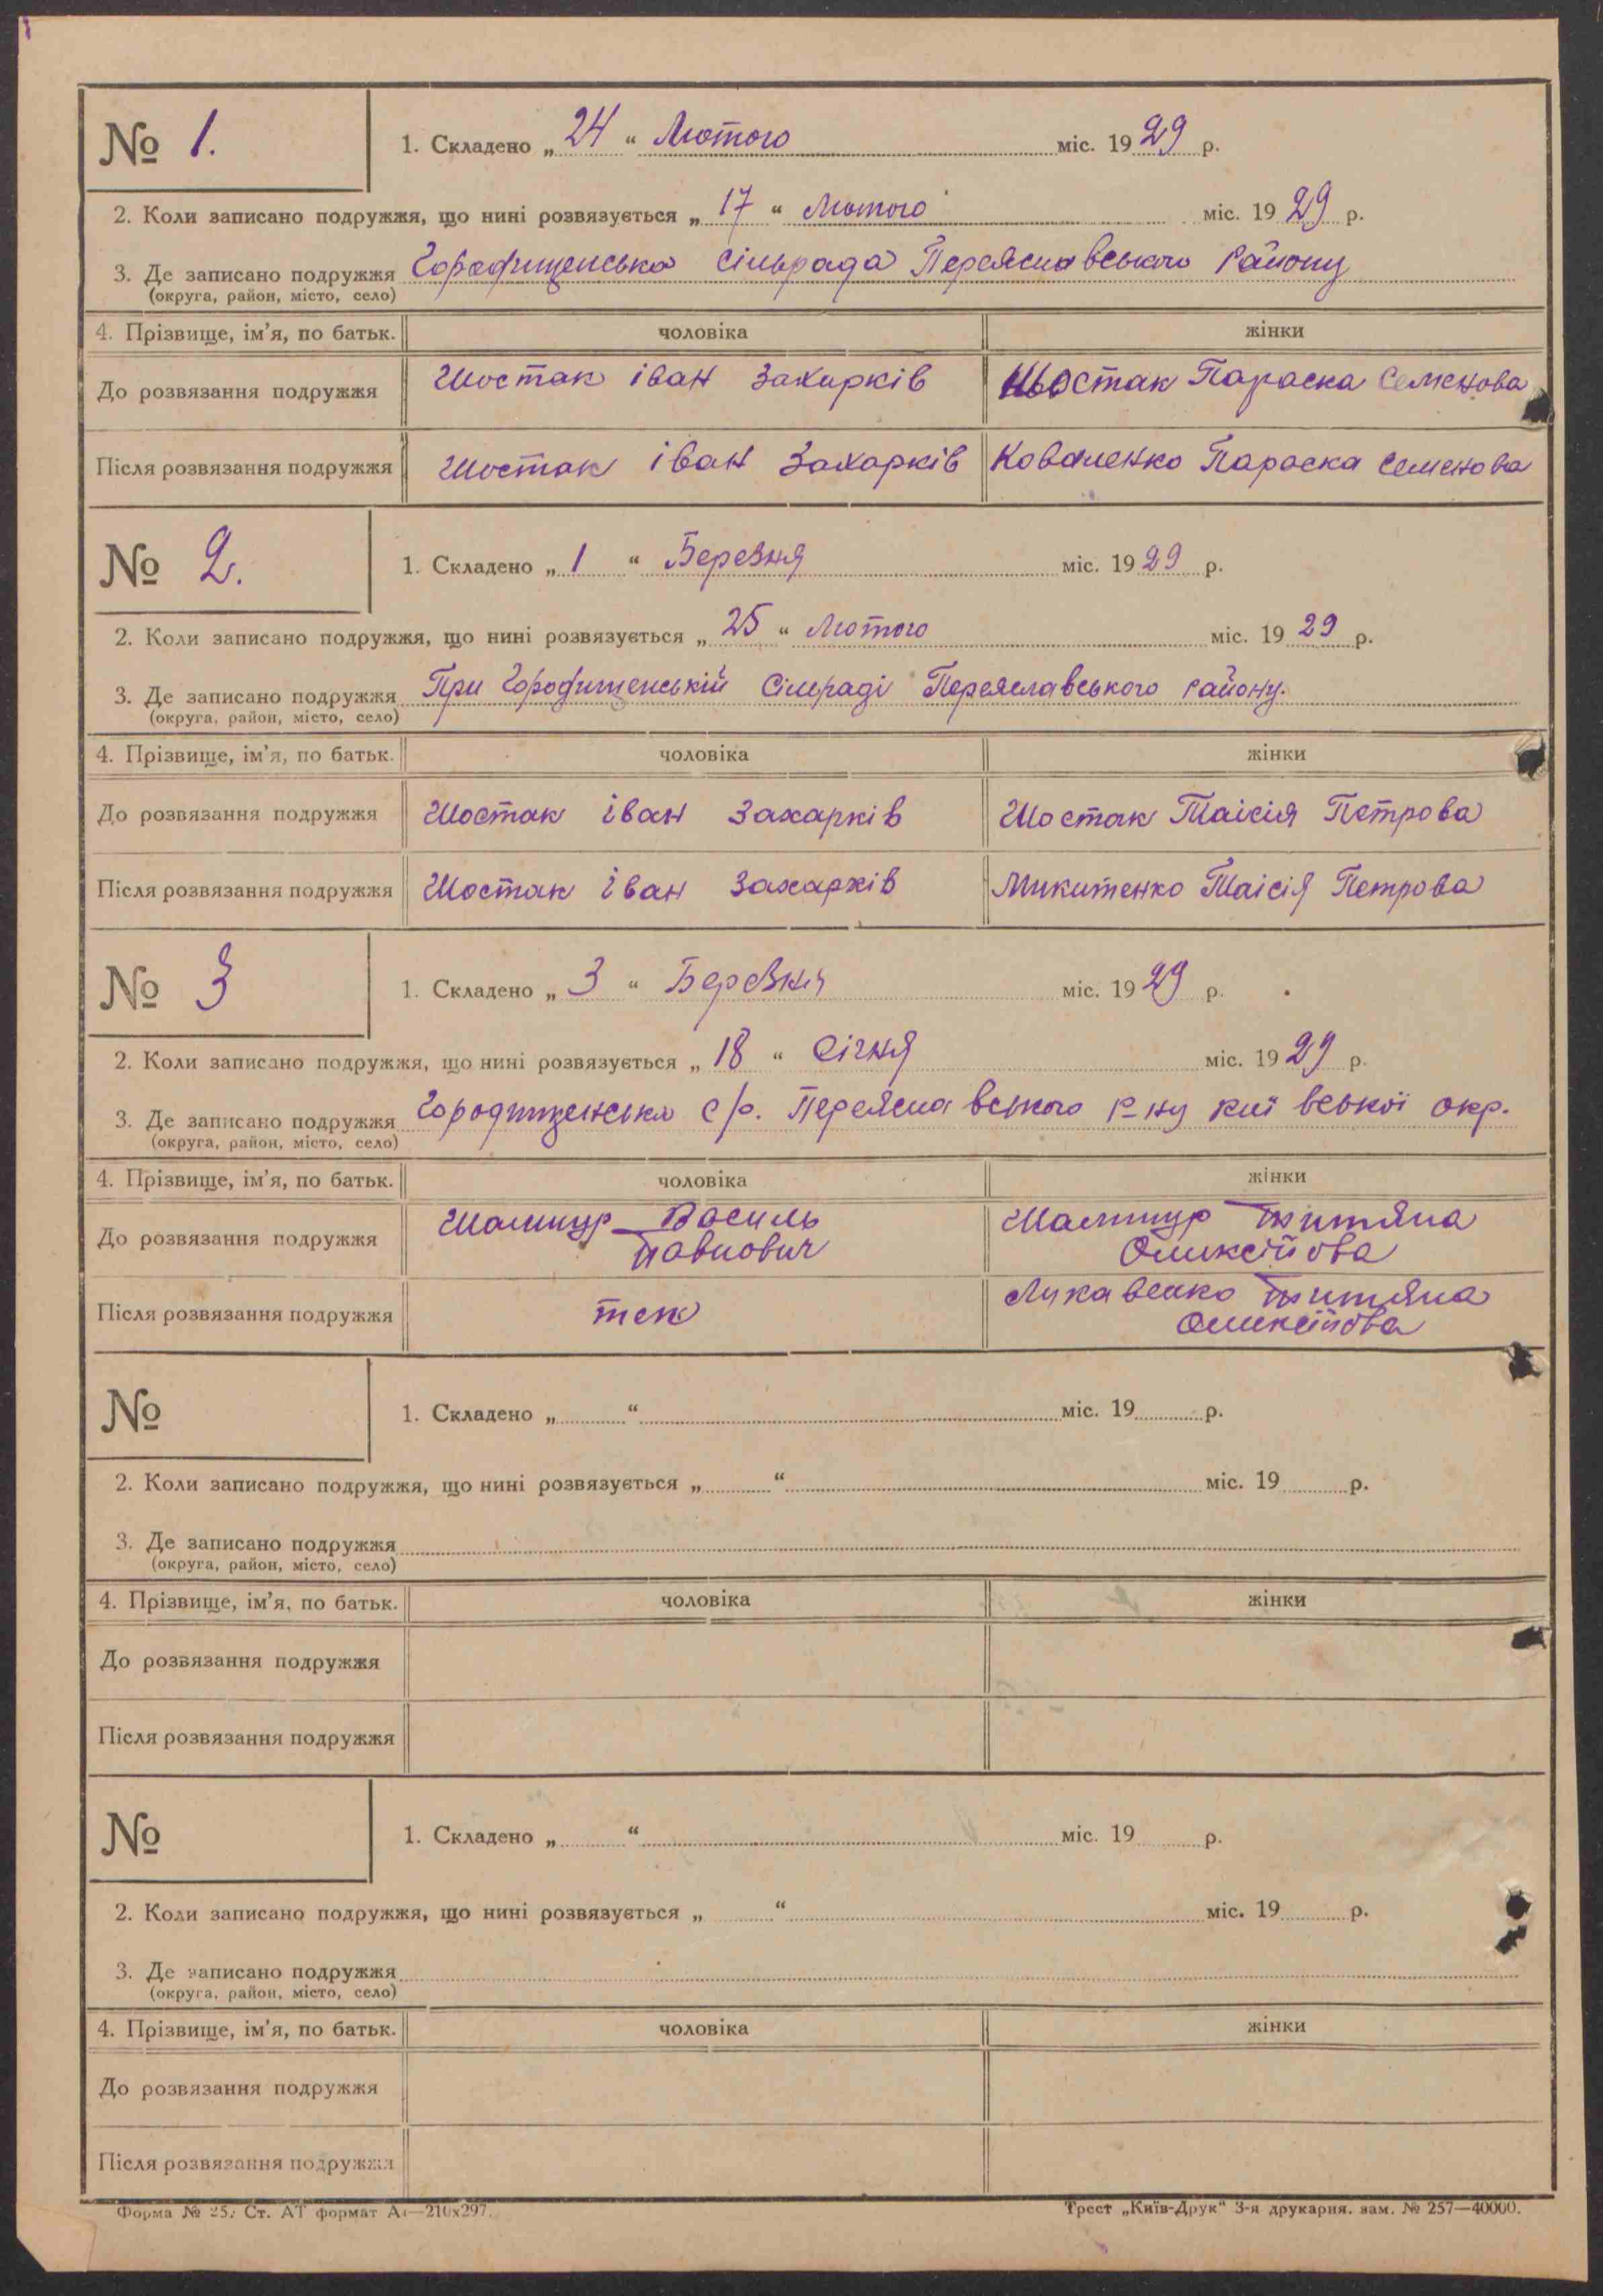 № 1. 1. Складено „ 24 “ Лютого міс. 1929 р.
2. Коли записано подружжя, що нині розвязується „ 17 “ Лютого міс. 1929 р.
3. Де записано подружжя Городищенська сільрада Переяславського Району
(округа, район, місто, село)
4. Прізвище, ім’я, по батьк. чоловіка жінки
До розвязання подружжя Шостак іван Захарків Шостак Параска Семенова
Після розвязання подружжя Шостак іван Захарків Коваленко Параска Семенова
№ 2. 1. Складено „ 1 “ Березня міс. 1929 р.
2. Коли записано подружжя, що нині розвязується „ 25 “ Лютого міс. 1929 р.
3. Де записано подружжя При Городищенській Сілраді Переяславського району.
(округа, район, місто, село)
4. Прізвище, ім’я, по батьк. чоловіка жінки
До розвязання подружжя Шостак іван Захарків Шостак Таісія Петрова
Після розвязання подружжя Шостак іван Захарків Микитенко Таісія Петрова
№ 3 1. Складено „ 3 “ Березня міс. 1929 р.
2. Коли записано подружжя, що нині розвязується „ 18 “ Січня міс. 1929 р.
3. Де записано подружжя Городищенська с/р. Переяславського р-ну Київської окр.
(округа, район, місто, село)
4. Прізвище, ім’я, по батьк. чоловіка жінки
До розвязання подружжя Василь Павлович
Після розвязання подружжя теж
№ 1. Складено „ “ міс. 19 р.
2. Коли записано подружжя, що нині розвязується „ “ міс. 19 р.
3. Де записано подружжя
(округа, район, місто, село)
4. Прізвище, ім’я, по батьк. чоловіка жінки
До розвязання подружжя
Після розвязання подружжя
№ 1. Складено „ “ міс. 19 р.
2. Коли записано подружжя, що нині розвязується „ “ міс. 19 р.
3. Де записано подружжя
(округа, район, місто, село)
4. Прізвище, ім’я, по батьк. чоловіка жінки
До розвязання подружжя
Після розвязання подружжя
Форма № 25. Ст. АТ формат А4—210х297. Трест „Київ-Друк“ 3-я друкарня. зам. № 257—40000.